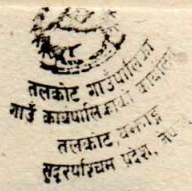 तलकोट गाउँपालिका
गाउँ कार्यपालिकाको कार्यालय
तलकोट, बझाङ्ग
सुदूरपश्चिम प्रदेश, नेपाल